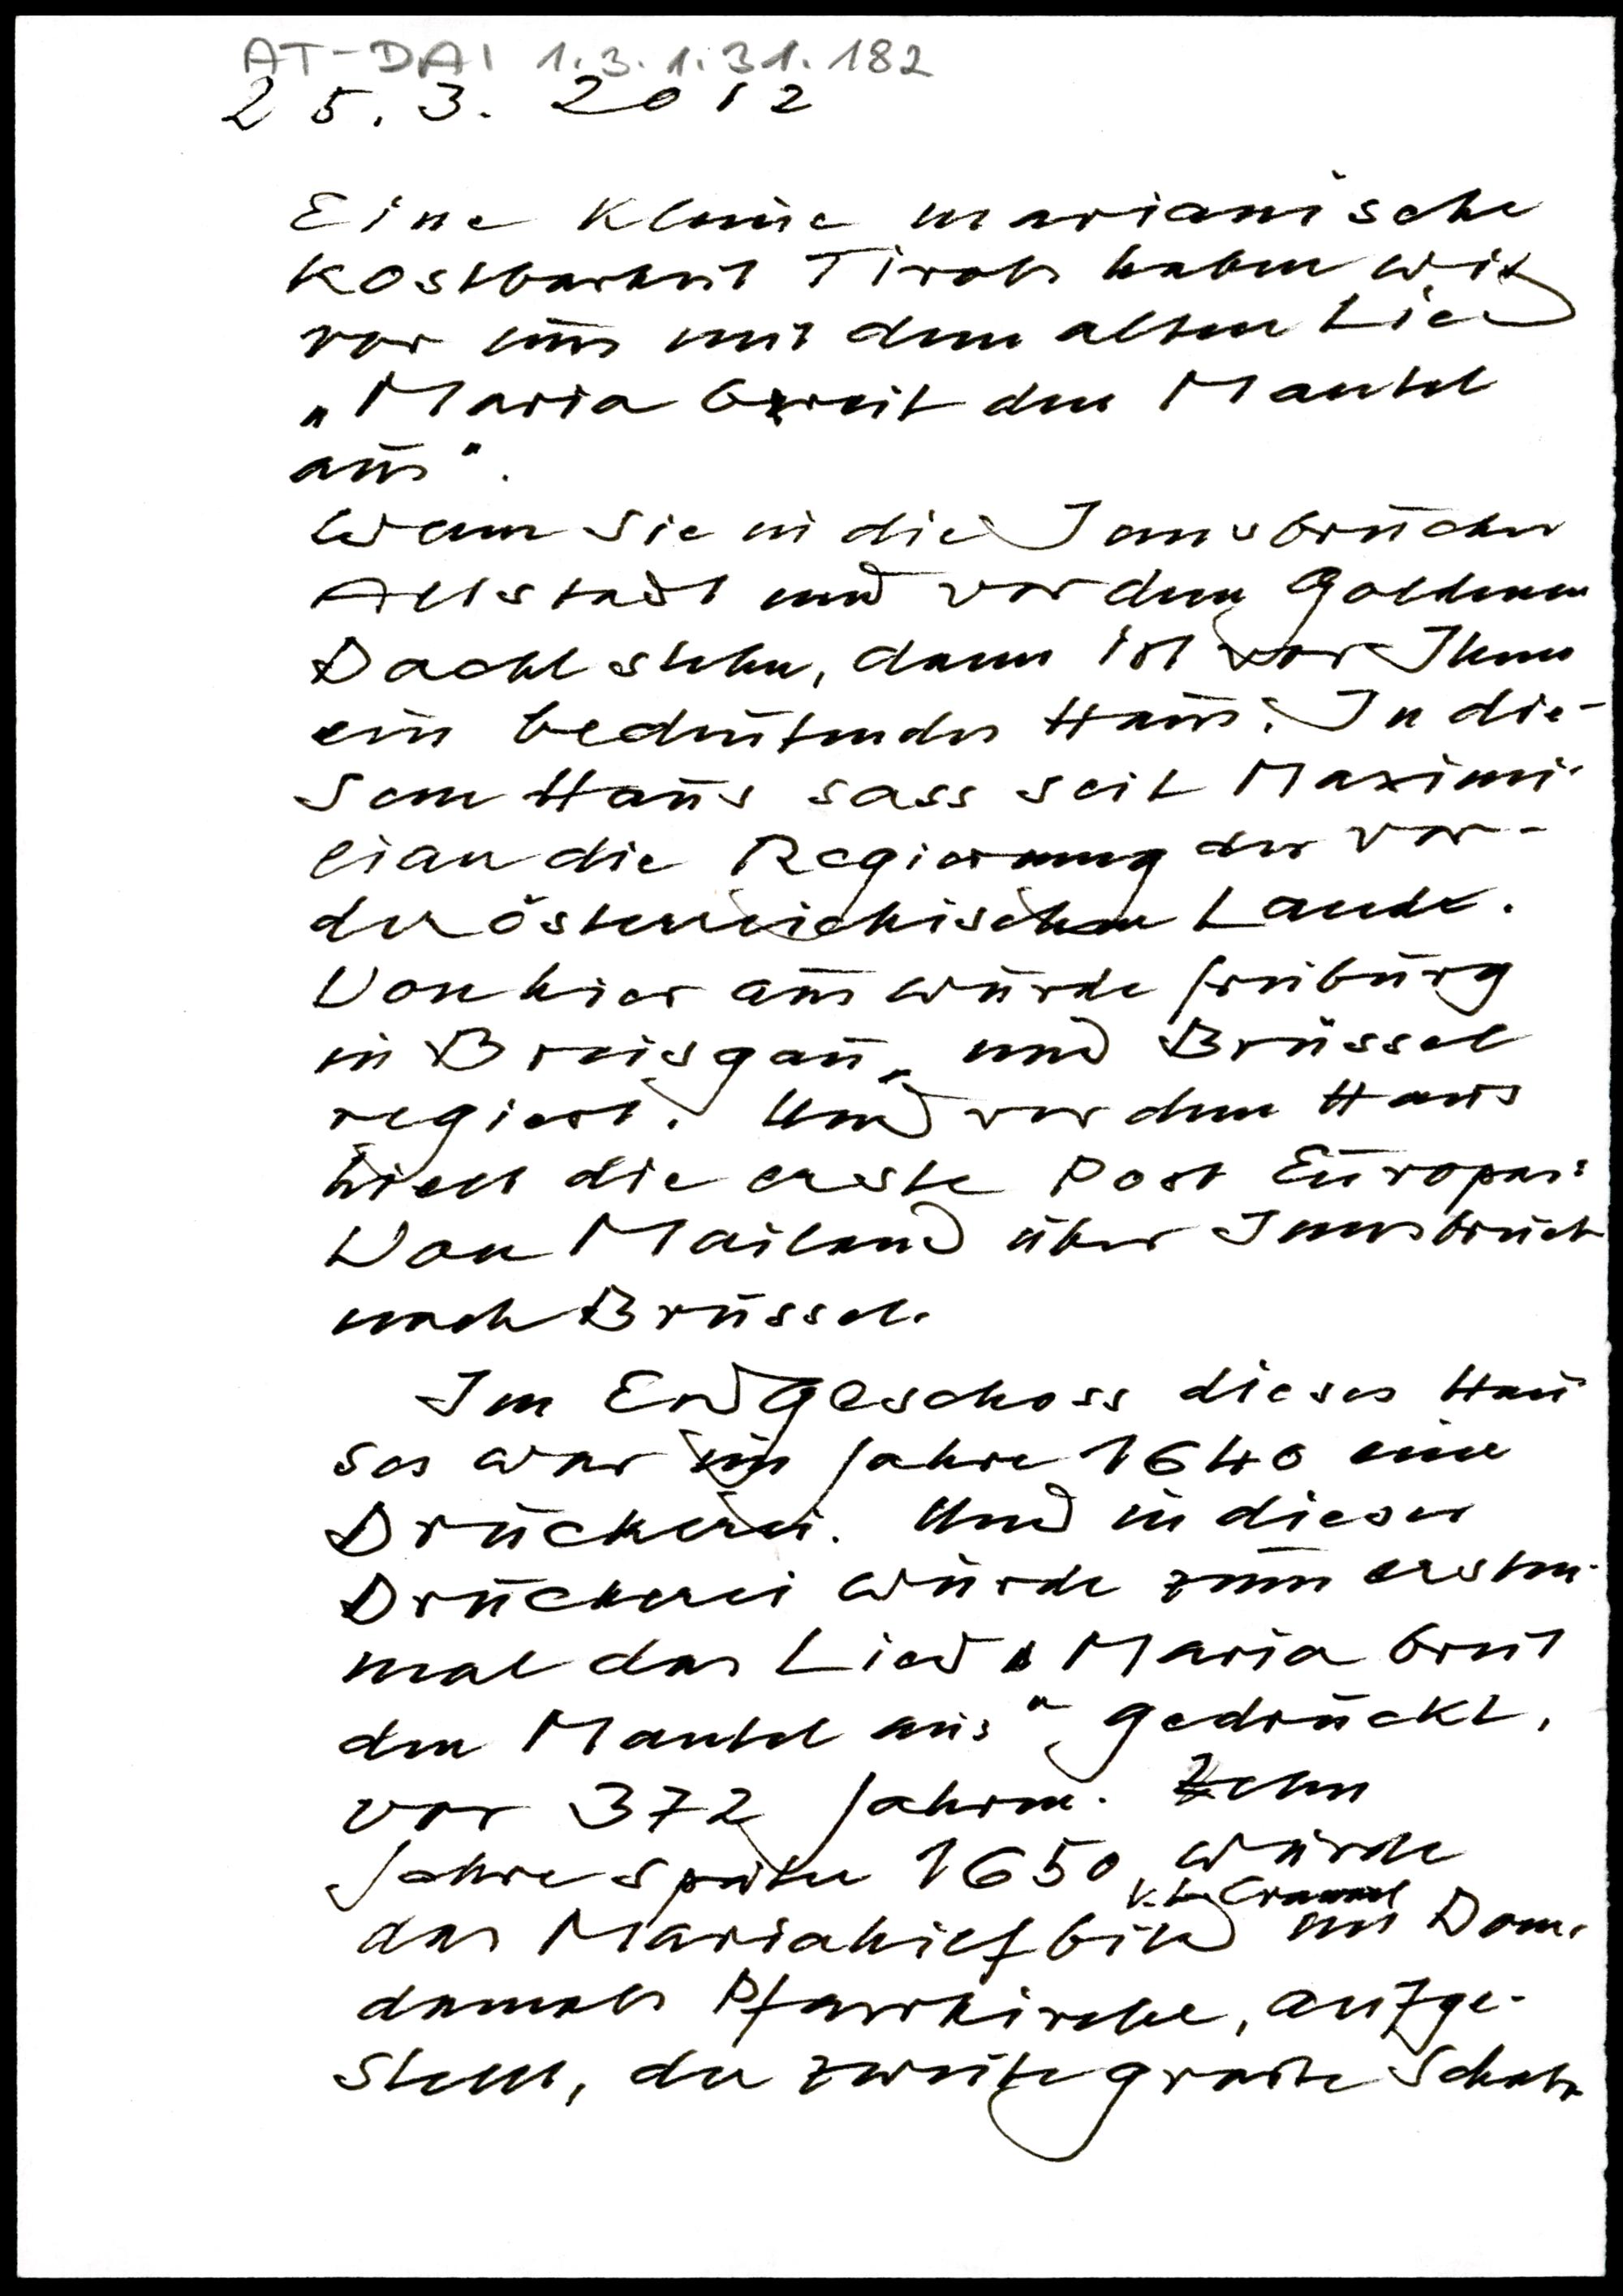 AT-DAI 1.3.1.31.182
25.3.2012
Eine kleine marianische
Kostbarkeit Tirols haben wir
vor uns mit dem alten Lied
„Maria breit den Mantel
aus".
Wenn Sie in die Innsbrucker
Altstadt und vor dem Goldenen
Dachl stehn, dann ist vor Ihnen
ein bedeutendes Haus. In die-
sem Haus sass seit Maximi-
lian die Regierung der vor-
derösterreichischen Lande.
Von hier aus wurde Freiburg
in Breisgau und Brüssel
regiert. Und vor dem Haus
hielt die erste Post Europas:
Von Mailand über Innsbruck
nach Brüssel.
Im Erdgeschoss dieses Hau
ses war im Jahre 1640 eine
Druckerei. Und in dieser
Druckerei wurde zum ersten-
mal das Lied „Maria breit
den Mantel aus" gedruckt,
vor 372 Jahren. Zehn
Jahre später 1650 wurde
v. L. Cranach
das Mariahilfbild im Dom,
damals Pfarrkirche, aufge-
stellt, der zweite grosse Schatz